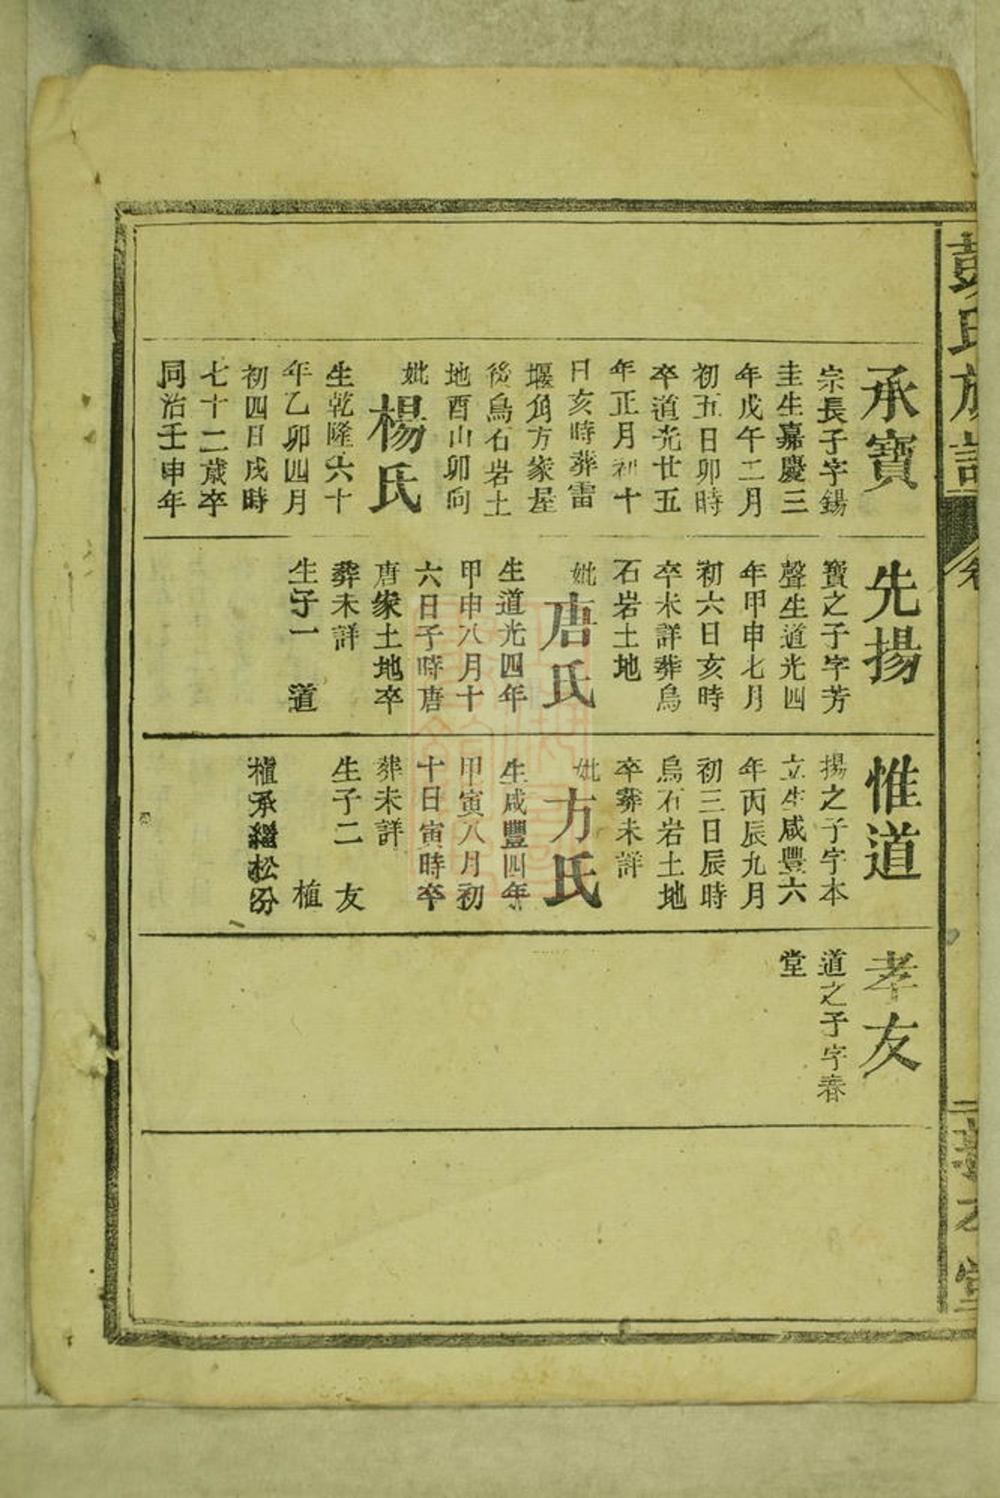 彭氏族譜
承寶
宗長子字錫
圭生嘉慶三
年戊午二月
初五日卯時
卒道光廿五
年正月初十
日亥時葬雷
堰角方家屋
後烏石岩土
地酉山卯向
妣楊氏
生乾隆六十
年乙卯四月
初四日戌時
七十二歲卒
同治壬申年
先揚
寶之子字芳
聲生道光四
年甲申七月
初六日亥時
卒未詳葬烏
石岩土地
妣唐氏
生道光四年
甲申八月十
六日子時唐
唐家土地卒
葬未詳
生子一 道
惟道
揚之子字本
立生咸豐六
年丙辰九月
初三日辰時
烏石岩土地
卒葬未詳
妣方氏
生咸豐四年
甲寅八月初
十日寅時卒
葬未詳
生子二 友
植
植承繼松汾
孝友
道之子字春
堂